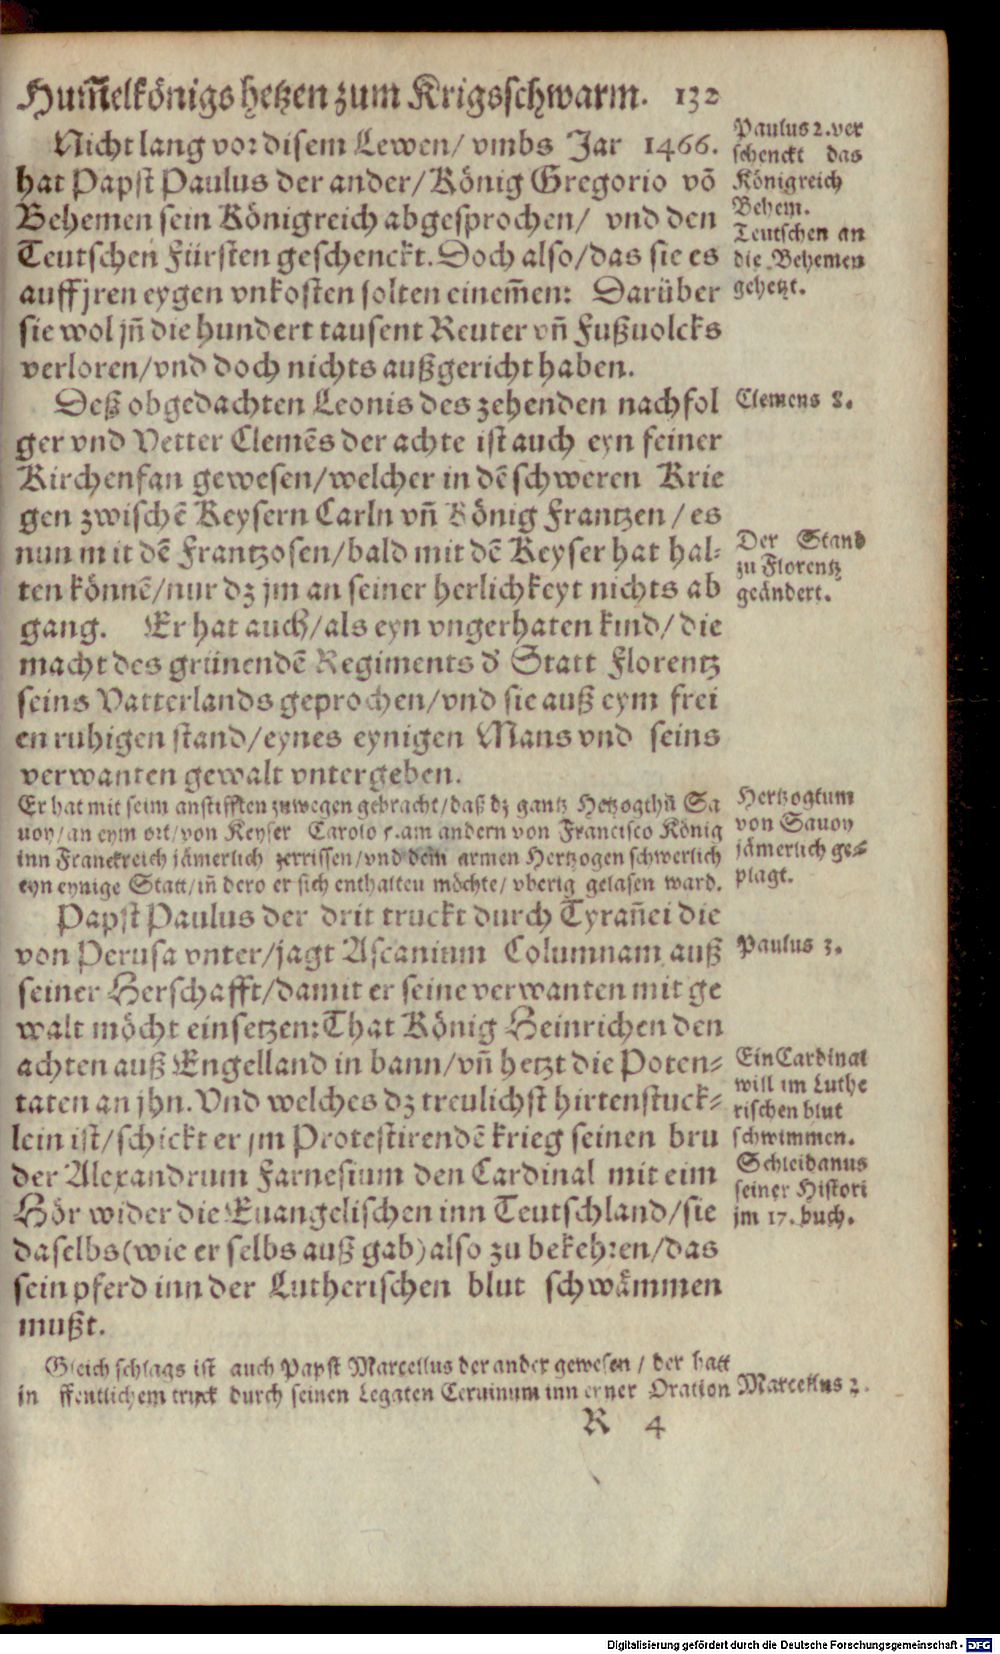 Hum̃elkönigs hetzen zum Krigsschwarm. 132
Nicht lang vor disem Lewen/ vmbs Jar 1466.
hat Papst Paulus der ander/ König Gregorio võ
Behemen sein Königreich abgesprochen/ vnd den
Teutschen Fürsten geschenckt. Doch also/ das sie es
auff jren eygen vnkosten solten einem̃en: Darüber
sie wol jñ die hundert tausent Reuter vñ Fußuolcks
verloren/ vnd doch nichts außgericht haben.
Paulus 2. ver
schenckt das
Königreich
Behem.
Teutschen an
die Behemen
gehetzt.
Deß obgedachten Leonis des zehenden nachfol
ger vnd Vetter Clemẽs der achte ist auch eyn feiner
Kirchenfan gewesen/ welcher in dẽ schweren Krie
gen zwischẽ Keysern Carln vñ König Frantzen/ es
nun mit dẽ Frantzosen/ bald mit dẽ Keyser hat hal-
ten könnẽ/ nur dz jm an seiner herlichkeyt nichts ab
gang. Er hat auch/ als eyn vngerhaten kind/ die
macht des grünendẽ Regiments d' Statt Florentz
seins Vatterlands geprochen/ vnd sie auß eym frei
en ruhigen stand/ eynes eynigen Mans vnd seins
verwanten gewalt vntergeben.
Clemens 8.
Der Stand
zu Florentz
geändert.
Er hat mit seim anstifften zuwegen gebracht/ daß dz gantz Hetzogthũ Sa
uoy/ an eym ort/ von Keyser Carolo 5. am andern von Francisco König
inn Franckreich jämerlich zerrissen/ vnd dem armen Hertzogen schwerlich
eyn eynige Statt/ iñ dero er sich enthalten möchte/ vberig gelasen ward.
Hertzogtum
von Sauoy
jämerlich ge-
plagt.
Papst Paulus der drit truckt durch Tyrañei die
von Perusa vnter/ jagt Ascanium Columnam auß
seiner Herschafft/ damit er seine verwanten mit ge
walt möcht einsetzen: That König Heinrichen den
achten auß Engelland in bann/ vñ hetzt die Poten-
taten an jhn. Vnd welches dz treulichst hirtenstuck-
lein ist/ schickt er jm Protestirendẽ krieg seinen bru
der Alexandrum Farnesium den Cardinal mit eim
Hör wider die Euangelischen inn Teutschland/ sie
daselbs (wie er selbs auß gab) also zu bekehren/ das
sein pferd inn der Lutherischen blut schwämmen
mußt.
Paulus 3.
Ein Cardinal
will im Luthe
rischen blut
schwimmen.
Schleidanus
seiner Histori
jm 17. buch.
Gleich schlags ist auch Papst Marcellus der ander gewesen/ der hatt
in ffentlichem truck durch seinen Legaten Ceruinum inn eyner Oration
Marcellus 2.
R 4
Digitalisierung gefördert durch die Deutsche Forschungsgemeinschaft - DFG